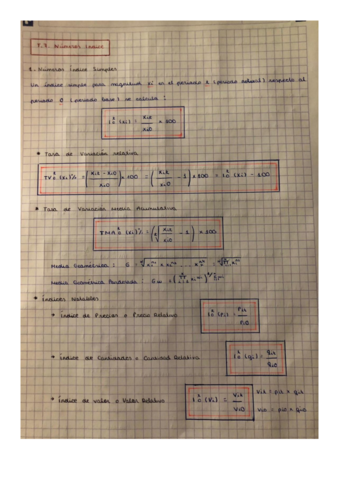 7.7. Números Índice
1.- Números Índice Simples
Un índice simple para magnitud xi en el periodo t (periodo actual) respecto al
periodo 0 (periodo base) se calcula:
I₀ᵗ (xi) = xit / xi0 × 100
* Tasa de Variación relativa
TV₀ᵗ (xi)% = (xit - xi0 / xi0) × 100 = (xit / xi0 - 1) × 100 = I₀ᵗ (xi) - 100
* Tasa de Variación Media Acumulativa
TMA₀ᵗ (xi)% = (ᵗ√(xit / xi0) - 1) × 100
Media Geométrica: G =
Media Geométrica Ponderada: Gw =
* Índices Naturales
* Índice de Precios o Precio Relativo
I₀ᵗ (pi) = pit /
* Índice de Cantidades o Cantidad Relativa
I₀ᵗ (qi) = qit / qi0
* Índice de Valor o Valor Relativo
I₀ᵗ (Vi) = Vit / Vi0
Vit = pit × qit